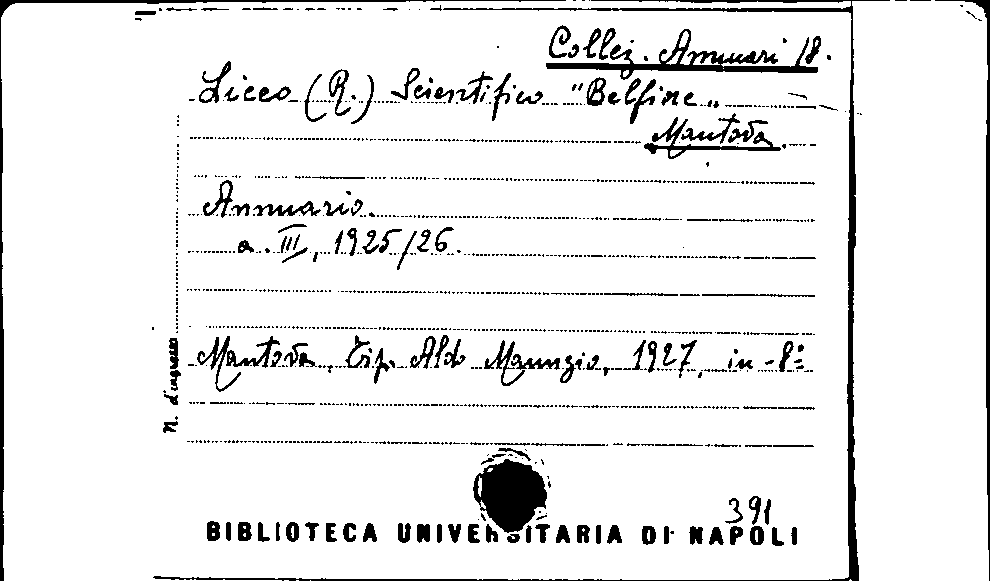 Collez. Annuari 18.
Liceo (R.) Scientifico "Belfiore"
Mantova.
Annuario.
a. III, 1925/26.
Mantova, Tip. Aldo Manuzio, 1927, in-8°
N. d'ingresso
391
BIBLIOTECA UNIVERSITARIA DI NAPOLI